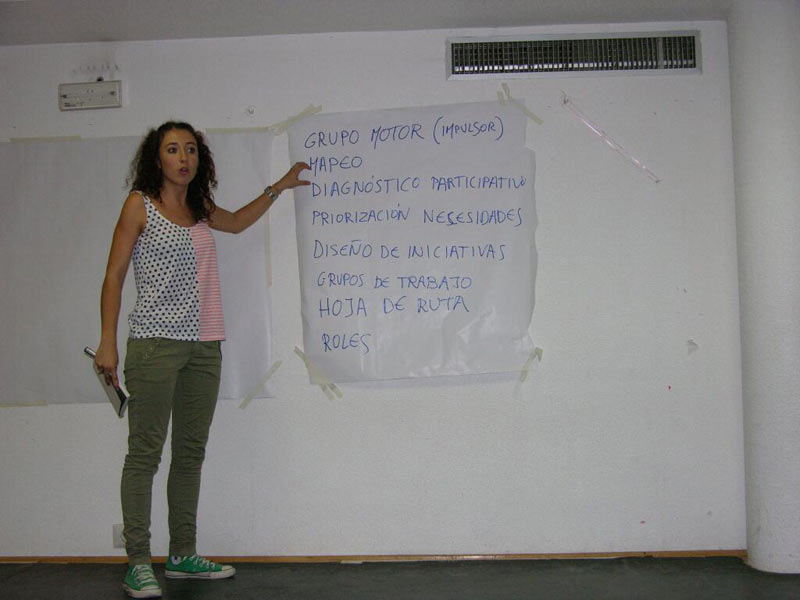 GRUPO MOTOR (IMPULSOR)
MAPEO
DIAGNÓSTICO PARTICIPATIVO
PRIORIZACIÓN NECESIDADES
DISEÑO DE INICIATIVAS
GRUPOS DE TRABAJO
HOJA DE RUTA
ROLES